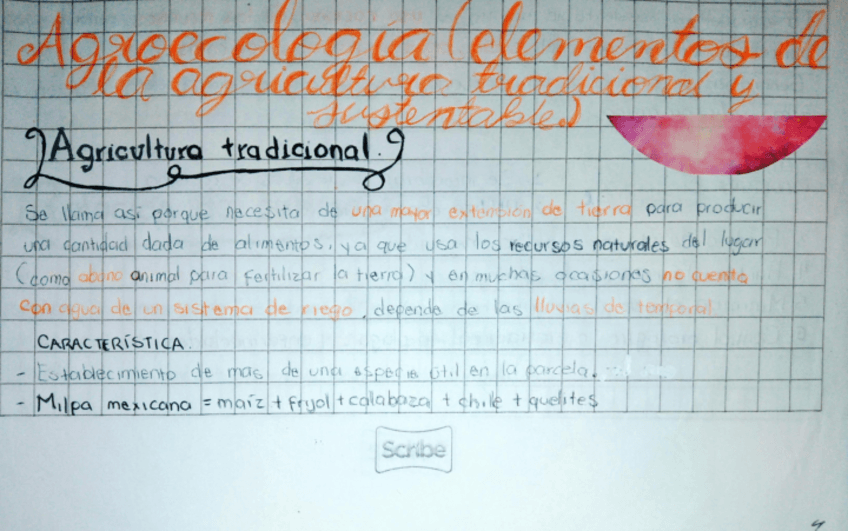 Agroecología (elementos de
la agricultura tradicional y
sustentable)
Agricultura tradicional.
Se llama así porque necesita de una mayor extensión de tierra para producir
una cantidad dada de alimentos, ya que usa los recursos naturales del lugar
(como abono animal para fertilizar la tierra) y en muchas ocasiones no cuenta
con agua de un sistema de riego, depende de las lluvias de temporal
CARACTERÍSTICA.
- Establecimiento de mas de una especie útil en la parcela.
- Milpa mexicana = maíz + frijol + calabaza + chile + quelites
Scribe
4